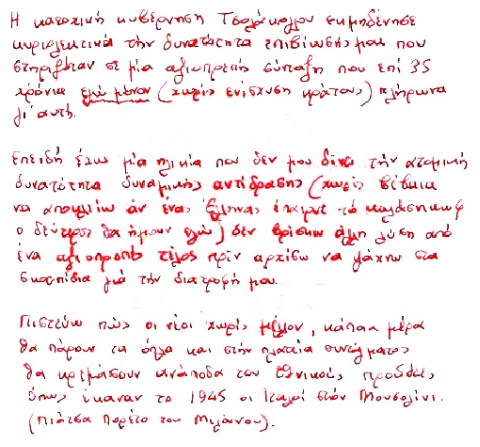 Η κατοχική κυβέρνηση Τσολάκογλου εκμηδένησε
κυριολεκτικά την δυνατότητα επιβίωσής μου που
στηριζόταν σε μία αξιοπρεπή σύνταξη που επί 35
χρόνια εγώ μόνον (χωρίς ενίσχυση κράτους) πλήρωνα
γι' αυτή.
Επειδή έχω μία ηλικία που δεν μου δίνει την ατομική
δυνατότητα δυναμικής αντίδρασης (χωρίς βέβαια
να αποκλείω άν ένας Έλληνας έπαιρνε το καλάσνικωφ
ο δεύτερος θα ήμουν εγώ) δεν βρίσκω άλλη λύση από
ένα αξιοπρεπές τέλος πρίν αρχίσω να ψάχνω στα
σκουπίδια γιά την διατροφή μου.
Πιστεύω πώς οι νέοι χωρίς μέλλον, κάποια μέρα
θα πάρουν τα όπλα και στην πλατεία συντάγματος
θα κρεμάσουν ανάποδα τους εθνικούς προδότες
όπως έκαναν το 1945 οι Ιταλοί στον Μουσολίνι.
(πιάτσα Πορέτο του Μιλάνου).